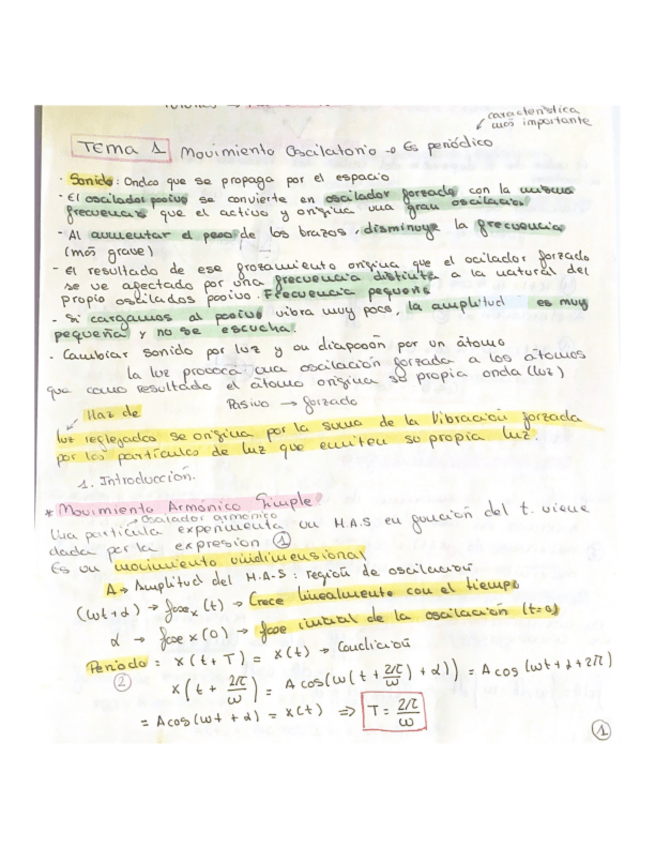 característica
más importante
TEMA 1 Movimiento Oscilatorio → Es periódico
· Sonido: Onda que se propaga por el espacio
· El oscilador pasivo se convierte en oscilador forzado con la misma
frecuencia que el activo y origina una gran oscilación
- Al aumentar el peso de los brazos, disminuye la frecuencia
(más grave)
- El resultado de ese forzamiento origina que el ocilador forzado
se ve afectado por una frecuencia distinta a la natural del
propio osciladas pasivo. Frecuencia pequeña
- Si cargamos al pasivo vibra muy poco, la amplitud es muy
pequeña y no se escucha.
· Cambiar sonido por luz y su diapasón por un átomo
la luz provoca una oscilación forzada a los átomos
que como resultado el átomo origina su propia onda (luz)
Haz de Pasivo → forzado
luz reflejados se origina por la suma de la vibración forzada
por los partículas de luz que emiten su propia luz.
1. Introducción.
* Movimiento Armónico Simple:
→ Oscilador armónico
Una partícula experimenta un M.A.S en función del t. viene
dada por la expresión ①
Es un movimiento unidimensional
A → Amplitud del M.A.S: región de oscilación
(wt+α) → fase x (t) → Crece linealmente con el tiempo
α → fase x(0) → fase inicial de la oscilación (t=0)
Periodo = x(t+T) = x(t) → Condición
② x(t + 2π/ω) = A cos(w(t + 2π/ω) + α)) = A cos (wt+α+2π)
= A cos (wt + α) = x(t) ⇒ T = 2π/ω
①